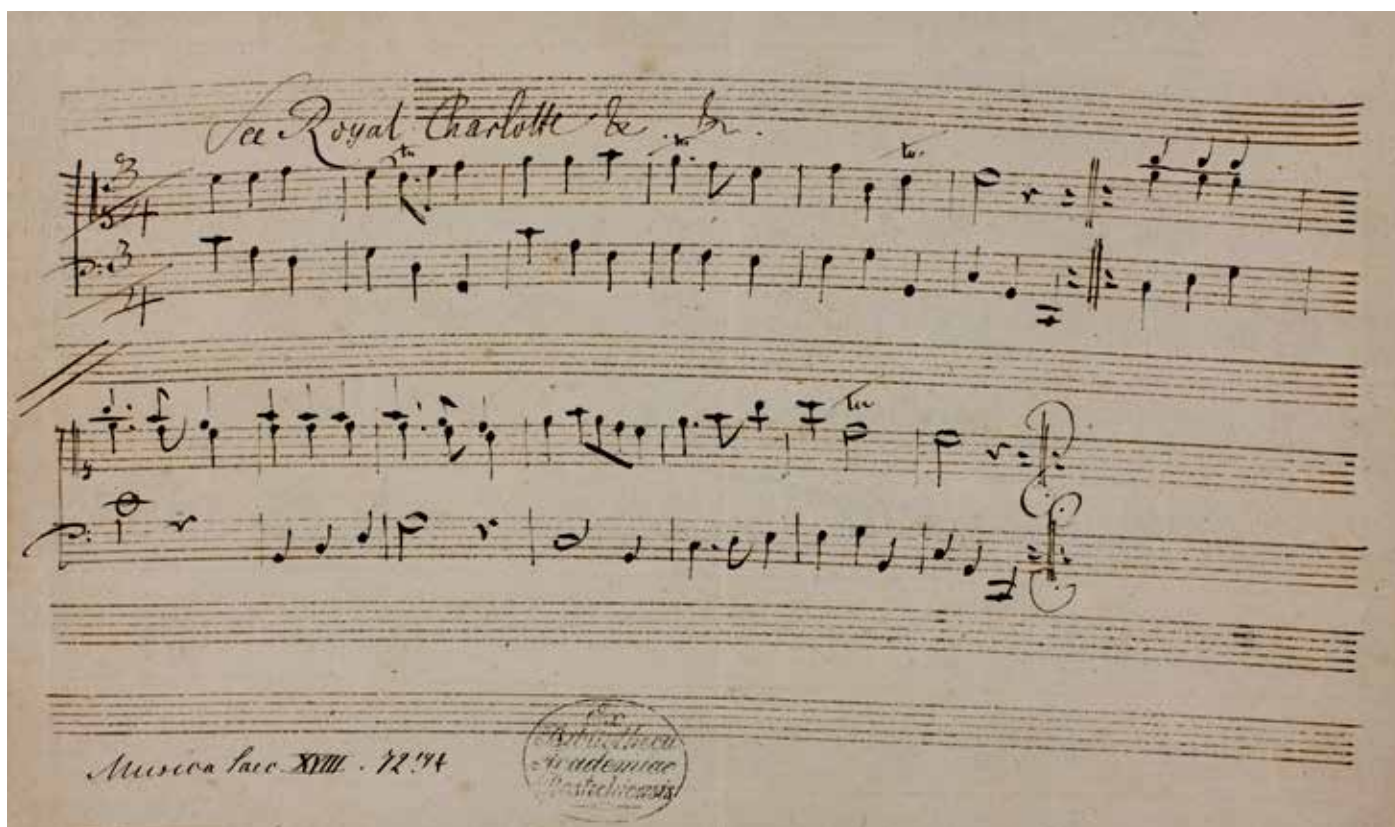 See Royal Charlotte &c.
tr tr tr
3 4
3 4
tr
Musica Saec. XVIII. 72.74
Ex
Bibliotheca
Academiae
Rostochiensis